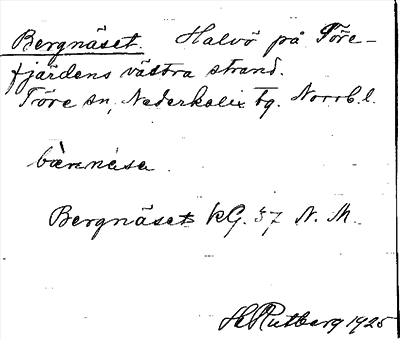 Bergnäset. Halvö på Töre-
fjärdens västra strand.
Töre sn, Nederkalix tg. Norrb. l.
bæ̀nnäsa
Bergnäset kG. 37 N. M.
Rutberg 1925